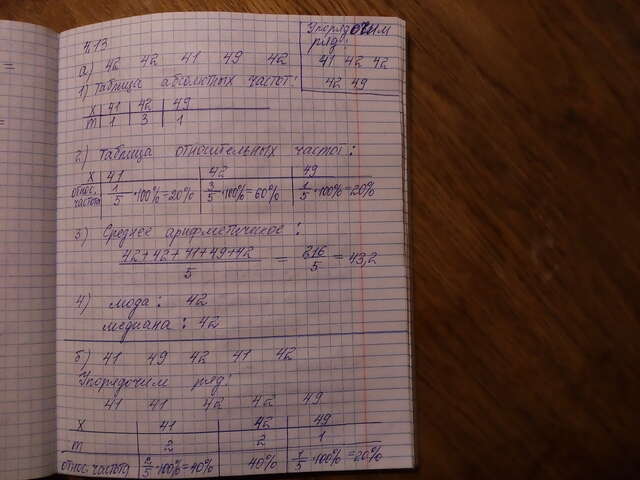 4.13
Упорядочим
ряд:
41 42 42
42 49
а) 42 42 41 49 42
1) Таблица абсолютных частот:
x 41 42 49
m 1 3 1
2) Таблица относительных частот:
x 41 42 49
относ. частота 1/5 · 100% = 20% 3/5 · 100% = 60% 1/5 · 100% = 20%
3) Среднее арифметическое:
42 + 42 + 41 + 49 + 42 / 5 = 216/5 = 43,2
4) мода: 42
медиана: 42
б) 41 49 42 41 42
Упорядочим ряд:
41 41 42 42 49
x 41 42 49
m 2 2 1
относ. частота 2/5 · 100% = 40% 40% 1/5 · 100% = 20%
=
=